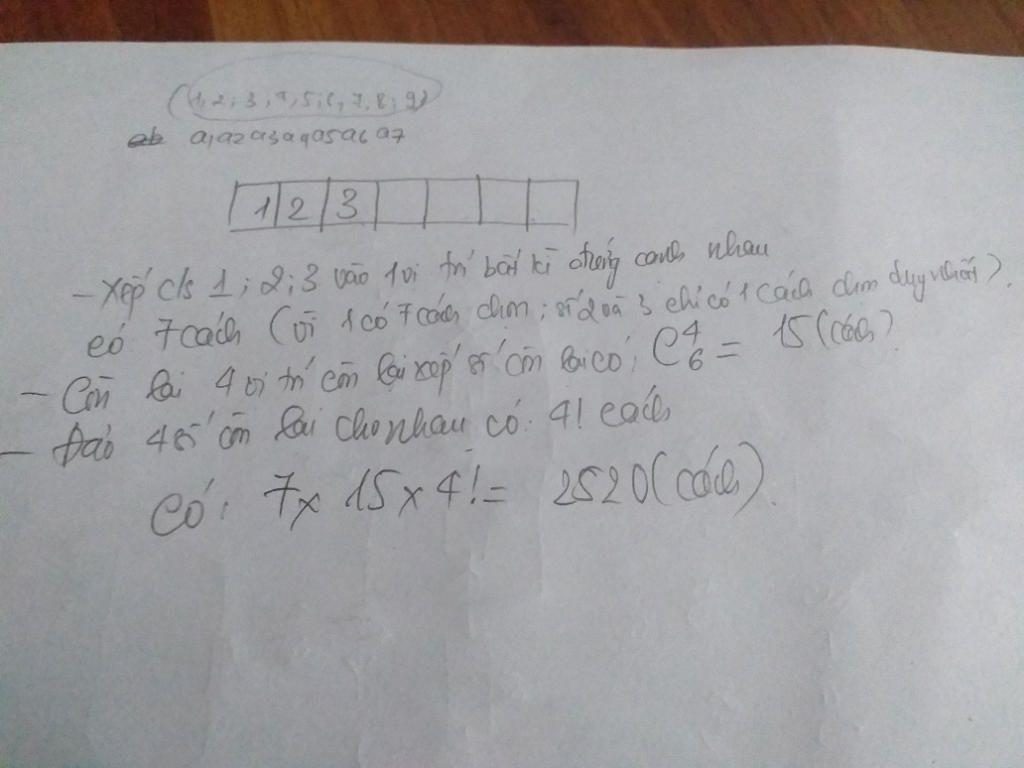 (1,2;3;4;5;6,7,8;9)
ab a1a2a3a4a5a6a7
1 2 3
- Xếp c/s 1; 2; 3 vào 1 vị trí bất kì đứng cạnh nhau
có 7 cách (vì 1 có 7 cách chọn; số 2 và 3 chỉ có 1 cách chọn duy nhất).
- Còn lại 4 vị trí còn lại xếp số còn lại có: C⁴₆ = 15 (cách).
- Đảo 4 số còn lại cho nhau có: 4! cách
Có: 7 x 15 x 4! = 2520 (cách).